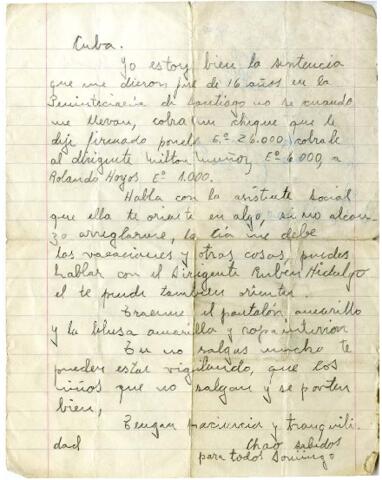 Cuba.
Yo estoy bien la sentencia
que me dieron fue de 16 años en la
Peninteciaria de Santiago no se cuando
me llevan, cobra un cheque que te
deje firmado ponele E.º 26.000 cobrale
al dirigente Milton Muñoz E.º 6.000, a
Rolando Hoyos E.º 1.000.
Habla con la asistente social
que ella te oriente en algo, si no alcan-
zo arreglarme, la Cia me debe
las vacaciones y otras cosas, puedes
hablar con el Dirigente Rubén Hidalgo
el te puede tambien orientar.
Traeme el pantalón amarillo
y la blusa amarilla y ropa interior
Tu no salgas mucho te
pueden estar vigilando, que los
niños que no salgan y se porten
bien,
Tengan paciencia y tranquili-
dad Chao saludos
para todos Domingo